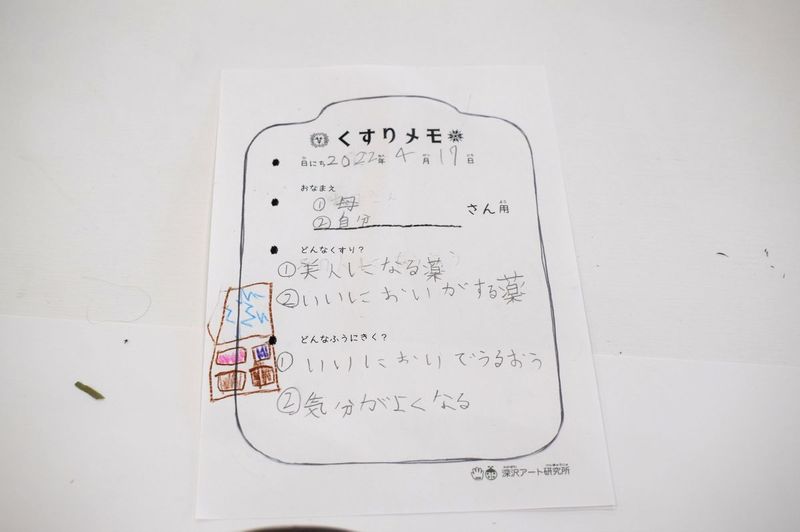 くすりメモ
日にち 2022年 4月 17日
おなまえ
①母
②自分 さん用
どんなくすり?
①美人になる薬
②いいにおいがする薬
どんなふうにきく?
①いいにおいでうるおう
②気分がよくなる
深沢アート研究所